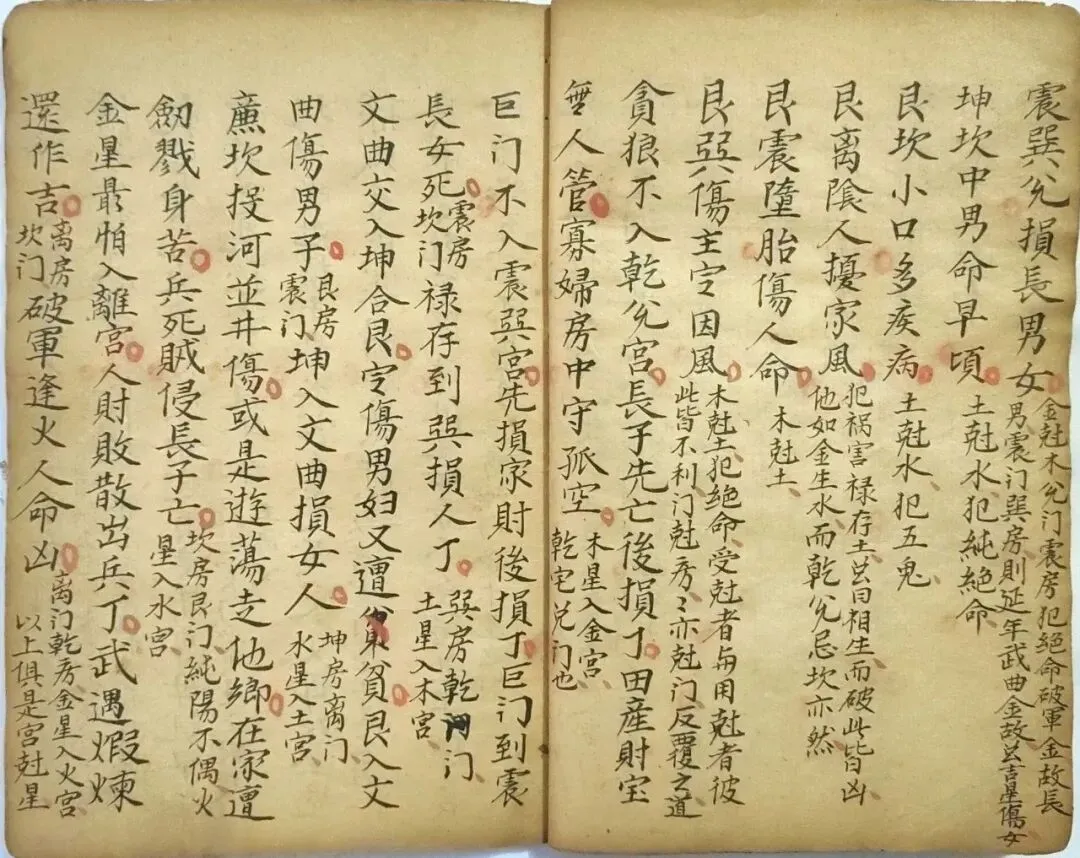 震巽兊損長男女金尅木兊门震房犯絕命破軍金故長
男震门巽房則延年武曲金故云吉星傷女
坤坎中男命早頃土尅水犯純絕命
艮坎小口多疾病土尅水犯五鬼
艮离陰人擾家風犯祸害禄存土云曰相生而破此皆凶
他如金生水而乾兊忌坎亦然
艮震墮胎傷人命木尅土
艮巽傷主定因風木尅土犯絕命受尅者每用尅者彼
此皆不利门尅房〻亦尅门反覆之道
貪狼不入乾兊宮長子先亡後損丁田産財宝
無人管寡婦房中守孤空木星入金宮
乾宅兊门也
巨门不入震巽宮先損家財後損丁巨门到震
長女死震房坎门禄存到巽損人丁巽房乾门
土星入木宮
文曲交入坤合艮定傷男妇又遭貧艮入文
曲傷男子艮房震门坤入文曲損女人坤房离门
水星入土宮
蔗坎投河並井傷或是遊蕩走他鄉在家遭
劒戮身苦兵死賊侵長子亡坎房艮门純陽不偶火
星入水宮
金星最怕入離宮人財敗散出兵丁武遇煆煉
還作吉离房坎门破軍逢火人命凶离门乾房金星入火宮
以上俱是宮尅星